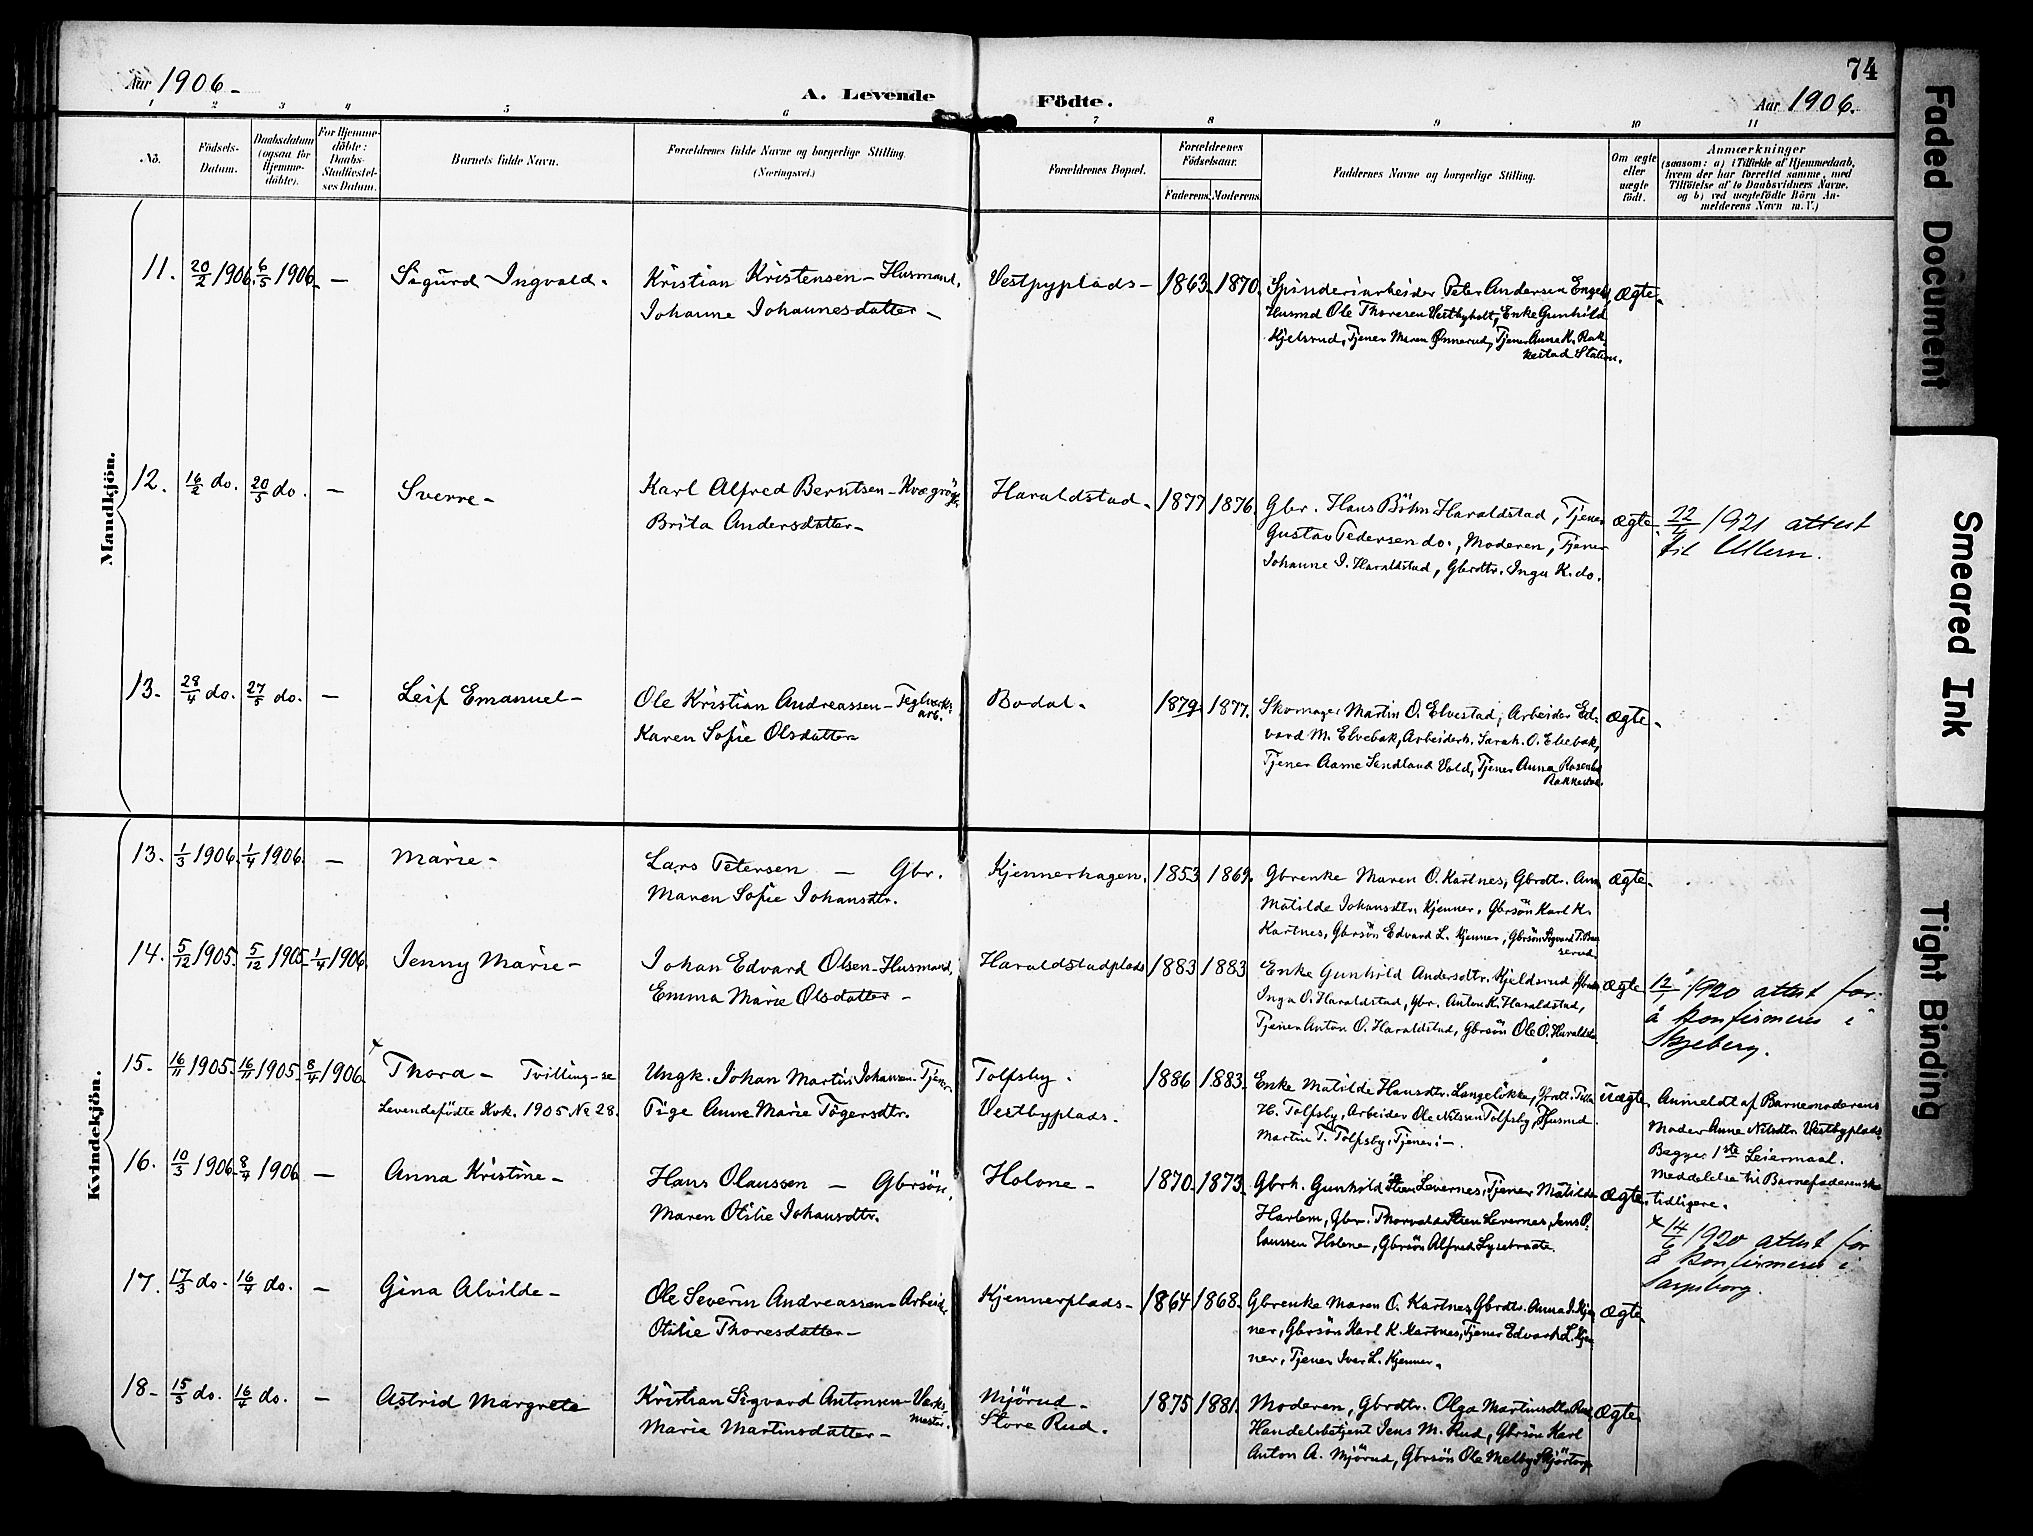 Aar 1906.
A. Levende Födte.
74
Aar 1906.
1 2 3 4 5 6 7 8 9 10 11
No. Födsels-Datum. Daabsdatum (ogsaa for Hjemme-döbte). For Hjemme-döbte: Daabs-Stadfæstel-ses Datum. Barnets fulde Navn. Forældrenes fulde Navne og borgerlige Stilling. (Næringsvei.) Forældrenes Bopæl. Forældrenes Födselsaar. Faderens. Moderens. Faddernes Navne og borgerlige Stilling. Om ægte eller uægte födt. Anmærkninger
(saasom: a) i Tilfælde af Hjemmedaab,
hvem der har forrettet samme, med
Tilföielse af to Daabsvidners Navne.
og b) ved uægtefödte Börn An-
melderens Navn m. V.)
Mandkjön.
11. 20/2 1906. 6/5 1906. — Sigurd Ingvald. Kristian Kristensen – Husmand, Vestbyplads – 1863. 1870. Spinderiarbeider Peter Andersen Engen, ægte.
Johanne Johannesdatter – Husmd Ole Thoresen Vestbyholt, Enke Gunhild
Kjelsrud, Tjener Maren Önnerud, Tjener Anna K. Rak-
kestad Station.
12. 16/2 do. 20/5 do. — Sverre – Karl Alfred Berntsen – Kvægrögt. Haraldstad – 1877 1876. Gbr. Hans Böhn Haraldstad, Tjener ægte. 22/4 1921 attest
Brita Andersdatter – Gustav Pedersen do., Moderen, Tjener til Ullern.
Johanne I. Haraldstad, Gbrdtr. Inga K. do.
13. 28/4 do. 27/5 do. — Leif Emanuel – Ole Kristian Andreassen – Teglverks- Bodal. 1879. 1877. Skomager Martin O. Elvestad, Arbeider Ed- ægte.
arb.
Karen Sofie Olsdatter vard M. Elvebak, Arbeiderh. Sarah. O. Elvebak,
Tjener Aasne Sendland Vold, Tjener Anna
Rakkestad.
Kvindekjön.
13. 1/3 1906. 1/4 1906. — Marie – Lars Petersen — Gbr. Kjennerhagen. 1853 1869. Gbrenke Maren O. Kartnes, Gbrdtr. Anna ægte.
Maren Sofie Johansdtr. Matilde Johansdtr. Kjenner, Gbrsön Karl K.
Kartnes, Gbrsön Edvard L. Kjenner, Gbrsön Sigvard T. Bas-
serud.
14. 5/12 1905. 5/12 1905. 1/4 1906. Jenny Marie – Johan Edvard Olsen – Husmand, Haraldstadplads 1883 1883 Enke Gunhild Andersdtr. Kjeldsrud, Gbrdtr. ægte 12/1 1920 attest for
Emma Marie Olsdatter – Inga O. Haraldstad, Gbr. Anton K. Haraldstad, å konfirmeres i
Tjener Anton O. Haraldstad, Gbrsön Ole O. Haraldstad. Skjeberg.
15. 16/11 1905. 16/11 1905. 8/4 1906. x Thora – Tvilling – se Ungk. Johan Martin Johansen – Tjener Tolfsby. 1886 1883. Enke Matilde Hansdtr. Langelökke, Gbrdtr. Tilla uægte Anmeldt af Barnemoderens
Levendefödte Kvk. 1905 No 28. Pige Anne Marie Tögersdtr. Vestbyplads. H. Tolfsby, Arbeider Ole Nilssen Tolfsby, Husmd Moder Anne Nilsdtr. Vestbyplads.
Martin T. Tolfsby, Tjener: – Begges 1ste Leiermaal.
Meddelelse til Barnefaderen ske
tidligere.
16. 10/3 1906. 8/4 1906 — Anna Kristine – Hans Olaussen — Gbrsön, Holone – 1870. 1873. Gbrk. Gunhild Sten Levernes, Tjener Matilde ægte.
Maren Otilie Johansdtr. Harlem, Gbr. Thorvald Sten Levernes, Jens O- x 14/6 1920 attest for
laussen Holone, Gbrsön Alfred Lysebraate. å konfirmeres i
Sarpsborg.
17. 17/3 do. 16/4 do. — Gina Alvilde – Ole Severin Andreassen – Arbeider, Kjennerplads – 1864 1868. Gbrenke Maren O. Kartnes, Gbrdtr. Anna J. Kjen- ægte.
Otilie Thoresdatter – ner, Gbrsön Karl K. Kartnes, Tjener Edvard L. Kjen-
ner, Tjener Iver L. Kjenner.
18 – 15/3 do. 16/4 do. — Astrid Margrete Kristian Sigvard Antonsen – Værks- Mjörud – 1875 1881. Moderen, Gbrdtr. Olga Martinsdtr. Rud, ægte.
mester.
Marie Martinsdatter – Store Rud. Handelsbetjent Jens M. Rud, Gbrsön Karl
Anton A. Mjörud, Gbrsön Ole Melby Skjörtorp
Faded Document
Smeared Ink
Tight Binding